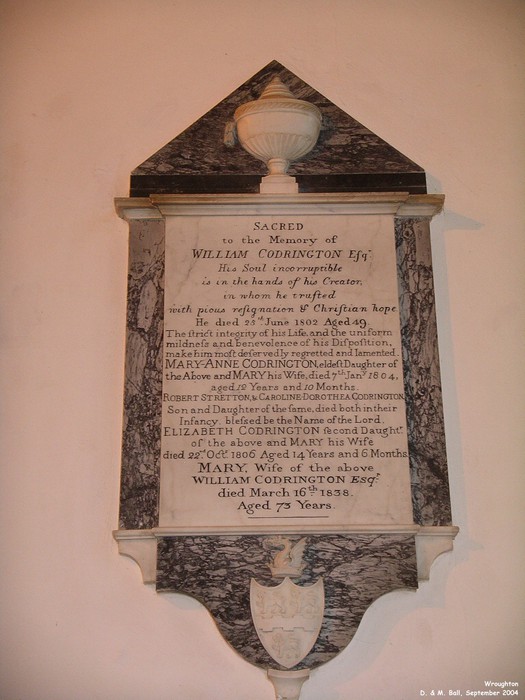 SACRED
to the Memory of
WILLIAM CODRINGTON Eſqr.
His Soul incorruptible
is in the hands of his Creator,
in whom he truſted
with pious reſignation & Chriſtian hope
He died 25th June 1802 Aged 49.
The ſtrict integrity of his Life, and the uniform
mildneſs and benevolence of his Diſpoſition,
make him moſt deſervedly regretted and lamented.
MARY-ANNE CODRINGTON, eldeſt Daughter of
the Above and MARY his Wife, died 7th Jany 1804,
aged 12 Years and 10 Months.
ROBERT STRETTON, & CAROLINE-DOROTHEA CODRINGTON,
Son and Daughter of the ſame, died both in their
Infancy. bleſsed be the Name of the Lord.
ELIZABETH CODRINGTON ſecond Daughtr.
of the above and MARY his Wife
died 22nd Octr. 1806 Aged 14 Years and 6 Months
MARY, Wife of the above
WILLIAM CODRINGTON Esqr.
died March 16th 1838.
Aged 73 Years.
Wroughton
D. & M. Ball, September 2004